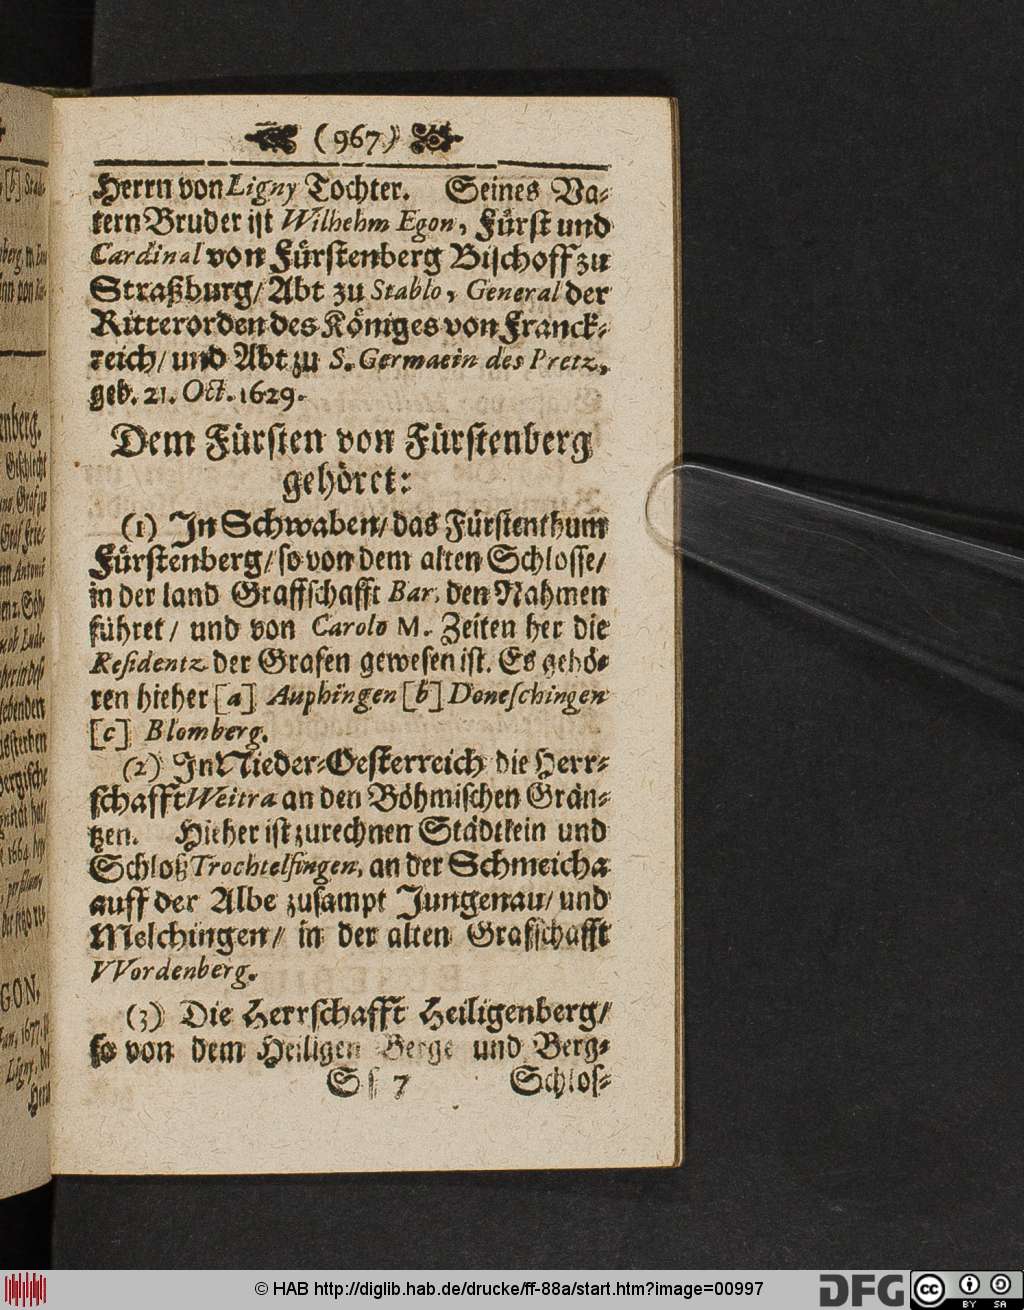 (967)
Herrn von Ligny Tochter. Seines Va-
tern Bruder ist Wilhehm Egon, Fürst und
Cardinal von Fürstenberg Bischoff zu
Straßburg/ Abt zu Stablo, General der
Ritterorden des Königes von Franck-
reich/ und Abt zu S. Germaein des Pretz,
geb. 21. Oct. 1629.
Dem Fürsten von Fürstenberg
gehöret:
(1) In Schwaben/ das Fürstenthum
Fürstenberg/ so von dem alten Schlosse/
in der land Graffschafft Bar, den Nahmen
führet/ und von Carolo M. Zeiten her die
Residentz der Grafen gewesen ist. Es gehö-
ren hieher [a] Auphingen [b] Doneschingen
[c] Blomberg.
(2) In Nieder-Oesterreich die Herr-
schafft Weitra an den Böhmischen Grän-
tzen. Hieher ist zurechnen Städtlein und
Schloß Trochtelfingen, an der Schmeicha
auff der Albe zusampt Jungenau/ und
Melchingen/ in der alten Grafschafft
VVordenberg.
(3) Die Herrschafft Heiligenberg/
so von dem Heiligen Berge und Berg-
Sſ 7 Schlos-
© HAB http://diglib.hab.de/drucke/ff-88a/start.htm?image=00997
DFG
cc BY SA